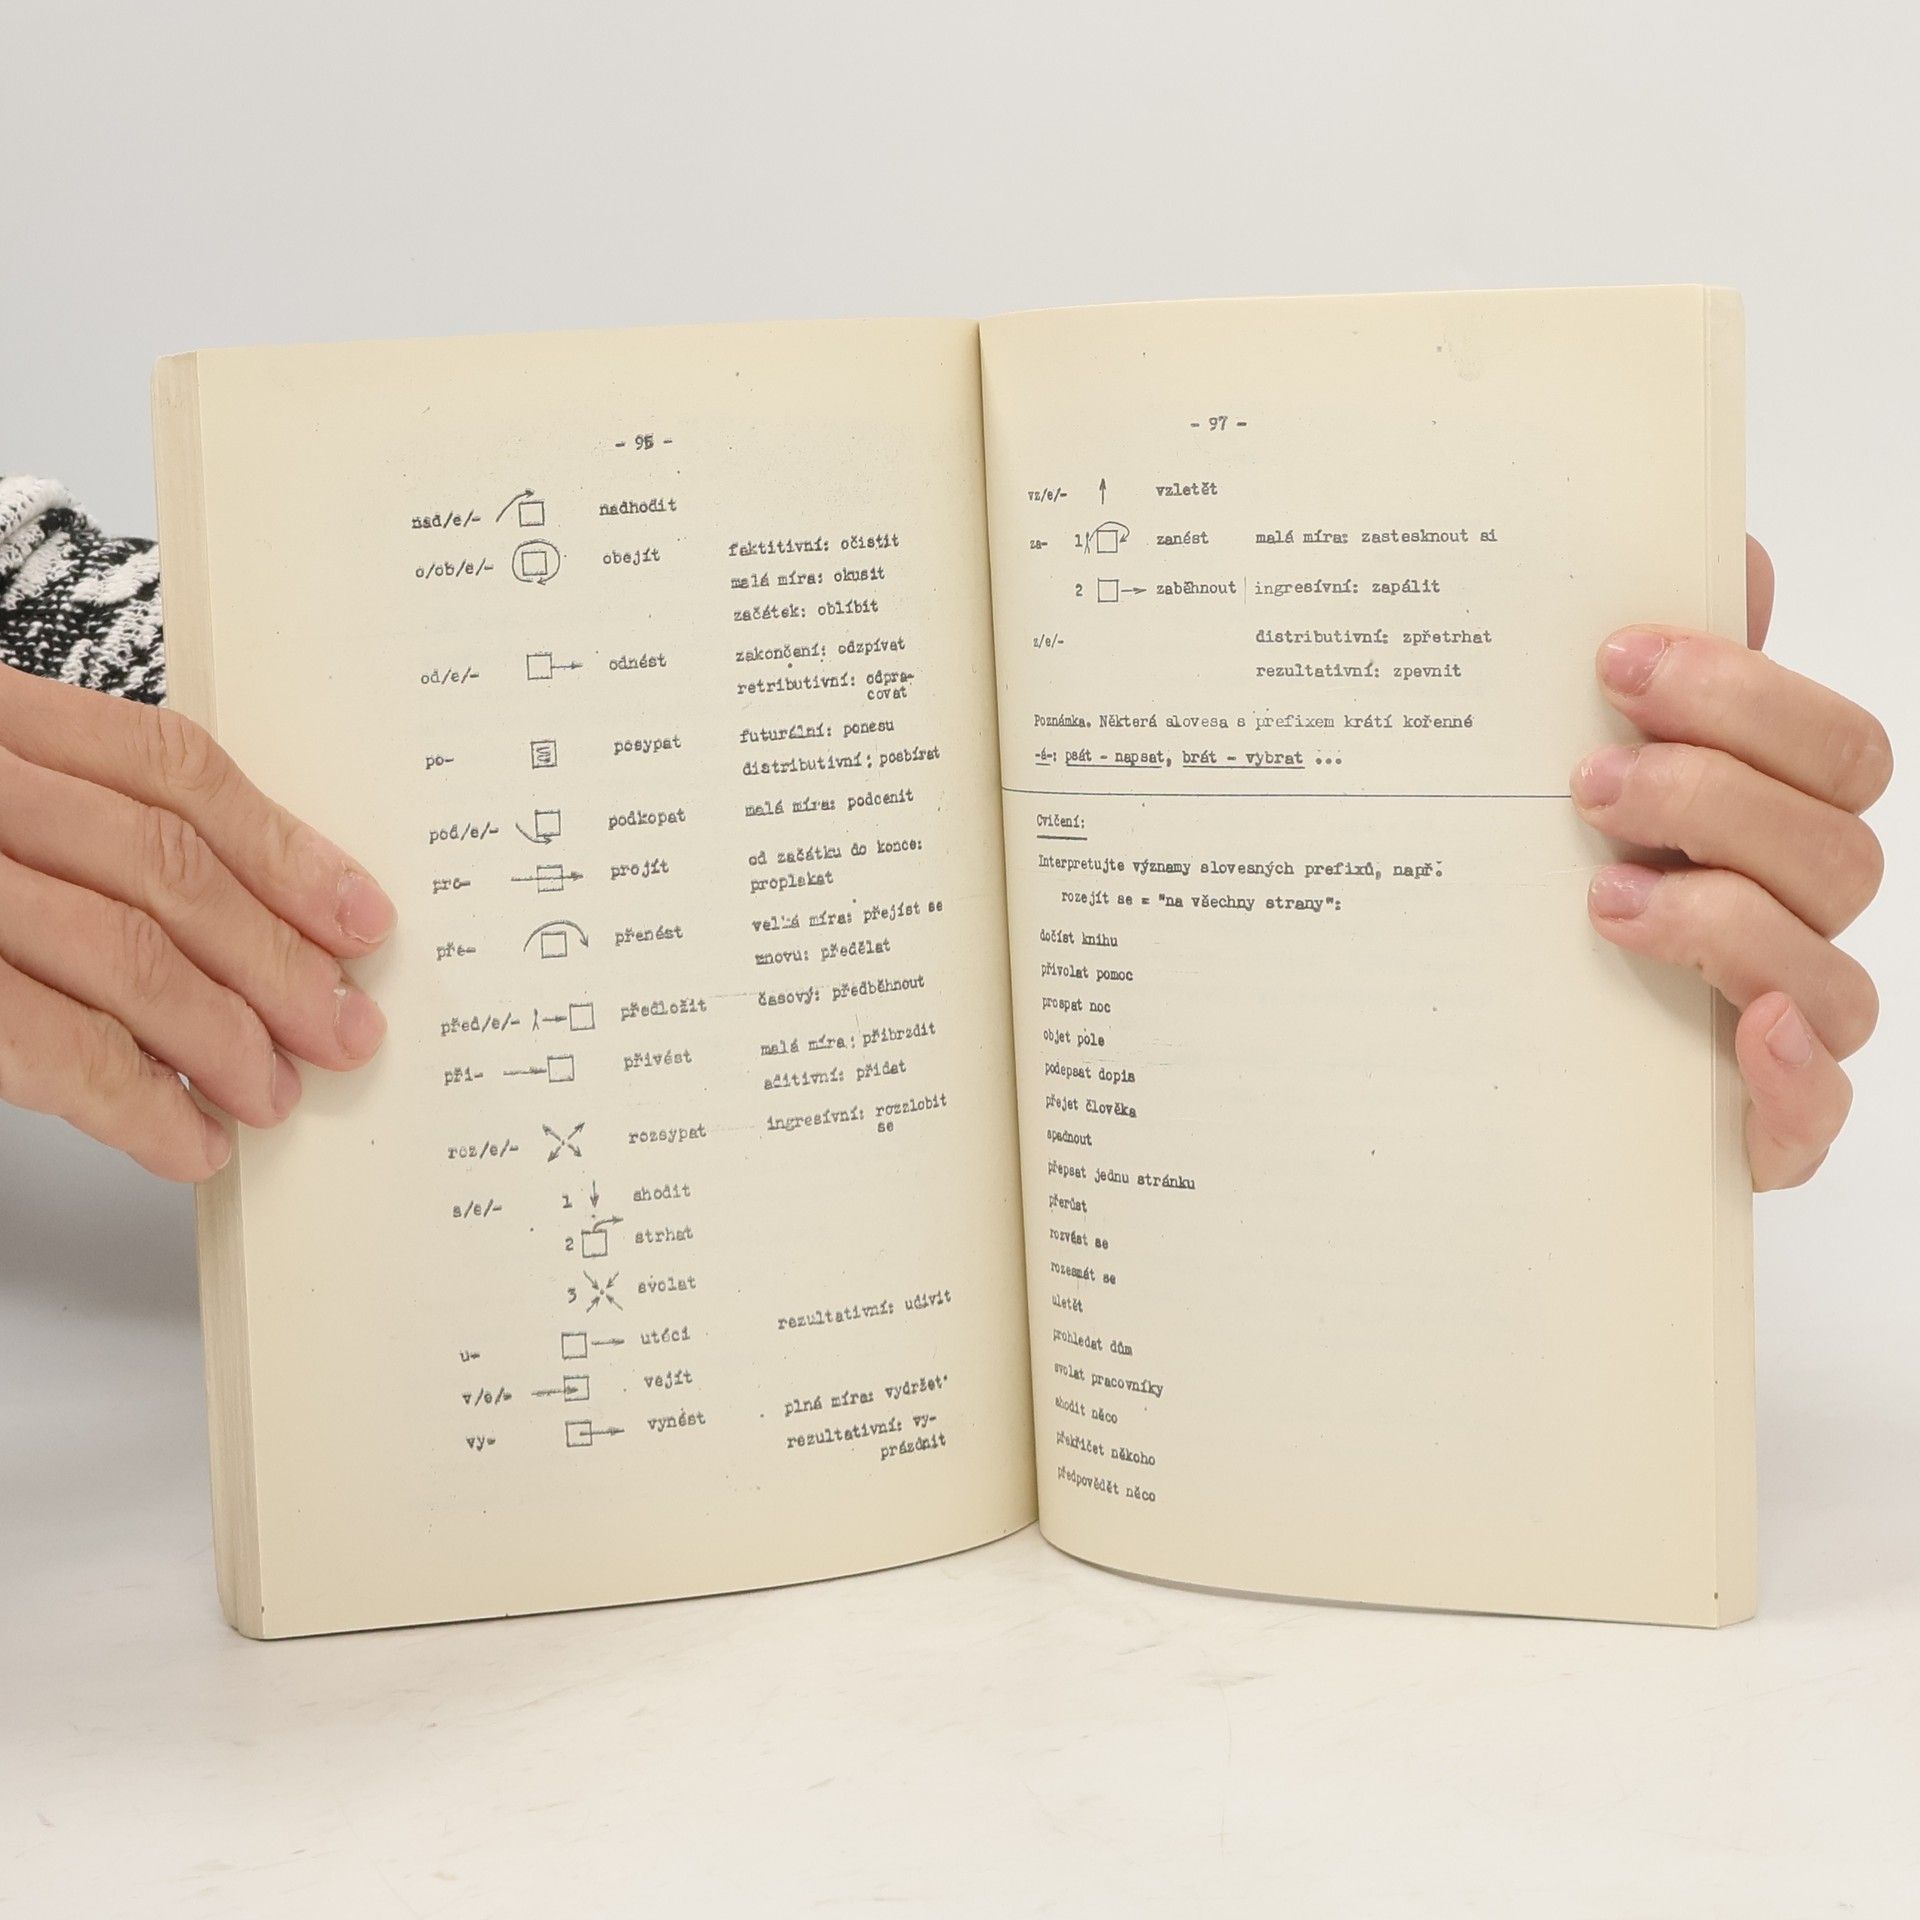 - 96 -
nad/e/- nadhodit
o/ob/e/- obejít faktitivní: očistit
malá míra: okusit
začátek: oblíbit
od/e/- odnést zakončení: odzpívat
retributivní: odpra-
covat
po- posypat futurální: ponesu
distributivní: posbírat
pod/e/- podkopat malá míra: podcenit
pro- projít od začátku do konce:
proplakat
pře- přenést velká míra: přejíst se
znovu: předělat
před/e/- předložit časový: předběhnout
při- přivést malá míra: přibrzdit
aditivní: přidat
roz/e/- rozsypat ingresívní: rozzlobit
se
s/e/- 1 shodit
2 strhat
3 svolat
u- utéci rezultativní: udivit
v/e/- vejít
vy- vynést plná míra: vydržet
rezultativní: vy-
prázdnit
- 97 -
vz/e/- vzletět
za- 1 zanést malá míra: zastesknout si
2 zaběhnout ingresívní: zapálit
z/e/- distributivní: zpřetrhat
rezultativní: zpevnit
Poznámka. Některá slovesa s prefixem krátí kořenné
-á-: psát - napsat, brát - vybrat ...
Cvičení:
Interpretujte významy slovesných prefixů, např.
rozejít se = "na všechny strany":
dočíst knihu
přivolat pomoc
prospat noc
objet pole
podepsat dopis
přejet člověka
spadnout
přepsat jednu stránku
přerůst
rozvést se
rozesmát se
uletět
prohledat dům
svolat pracovníky
shodit něco
překřičet někoho
předpovědět něco